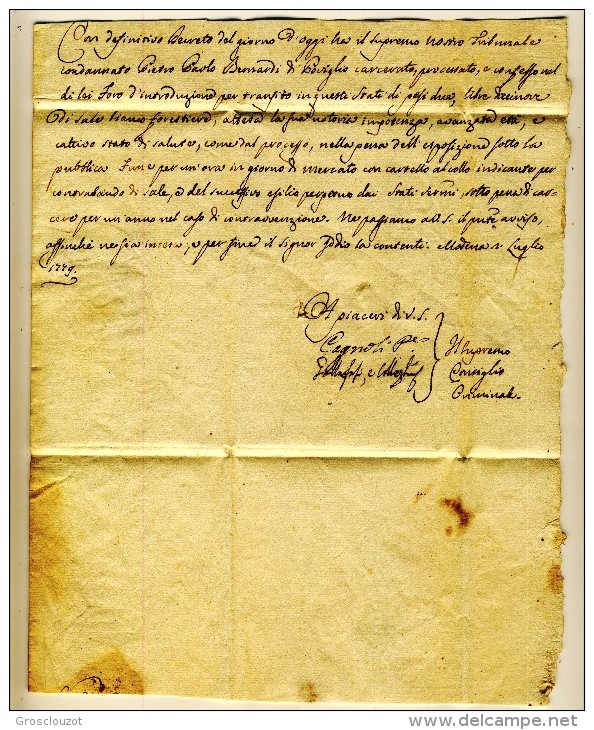 Con definitivo Decreto del giorno d'oggi ha il Supremo nostro Tribunale
condannato Pietro Paolo Bernardi di Poviglio carcerato, processato, e confesso nel
di lei Foro d'introduzione per transito in questi Stati di pesi due, libre diecinove
di sale bianco forestiero, attesa la sua notoria impotenza, avanzata età, e
cattivo stato di salute, come dal processo, nella pena dell'esposizione sotto la
pubblica Fune per un'ora in giorno di mercato con cartello al collo indicante per
contrabando di sale, e del successivo esilio perpetuo dai Stati Sermi, sotto pena di car-
cere per un anno nel caso di contravvenzione. Ne passiamo a V. S. il pnte avviso,
affinchè ne sia intesa, e per fine il Signor Iddio la contenti. Modena 1 Luglio
1779.
A piaceri di V. S.
Cagnoli Pe
Il Supremo
Consiglio
Criminale
Grosclouzot
www.delcampe.net